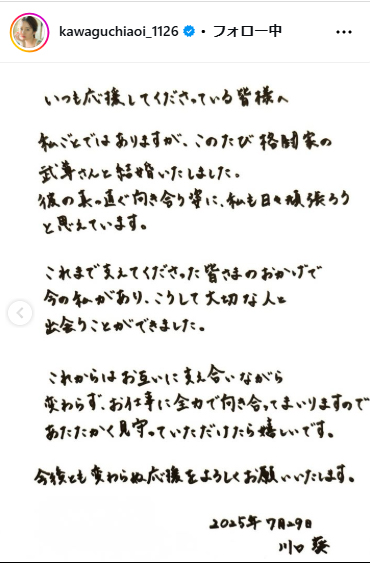 kawaguchiaoi_1126 • フォロー中
いつも応援してくださっている皆様へ
私ごとではありますが、このたび格闘家の
武尊さんと結婚いたしました。
彼の真っ直ぐ向き合う姿に、私も日々頑張ろう
と思えています。
これまで支えてくださった皆さまのおかげで
今の私があり、こうして大切な人と
出会うことができました。
これからはお互いに支え合いながら
変わらず、お仕事に全力で向き合ってまいりますので
あたたかく見守っていただけたら嬉しいです。
今後とも変わらぬ応援をよろしくお願いいたします。
2025年7月29日
川口葵